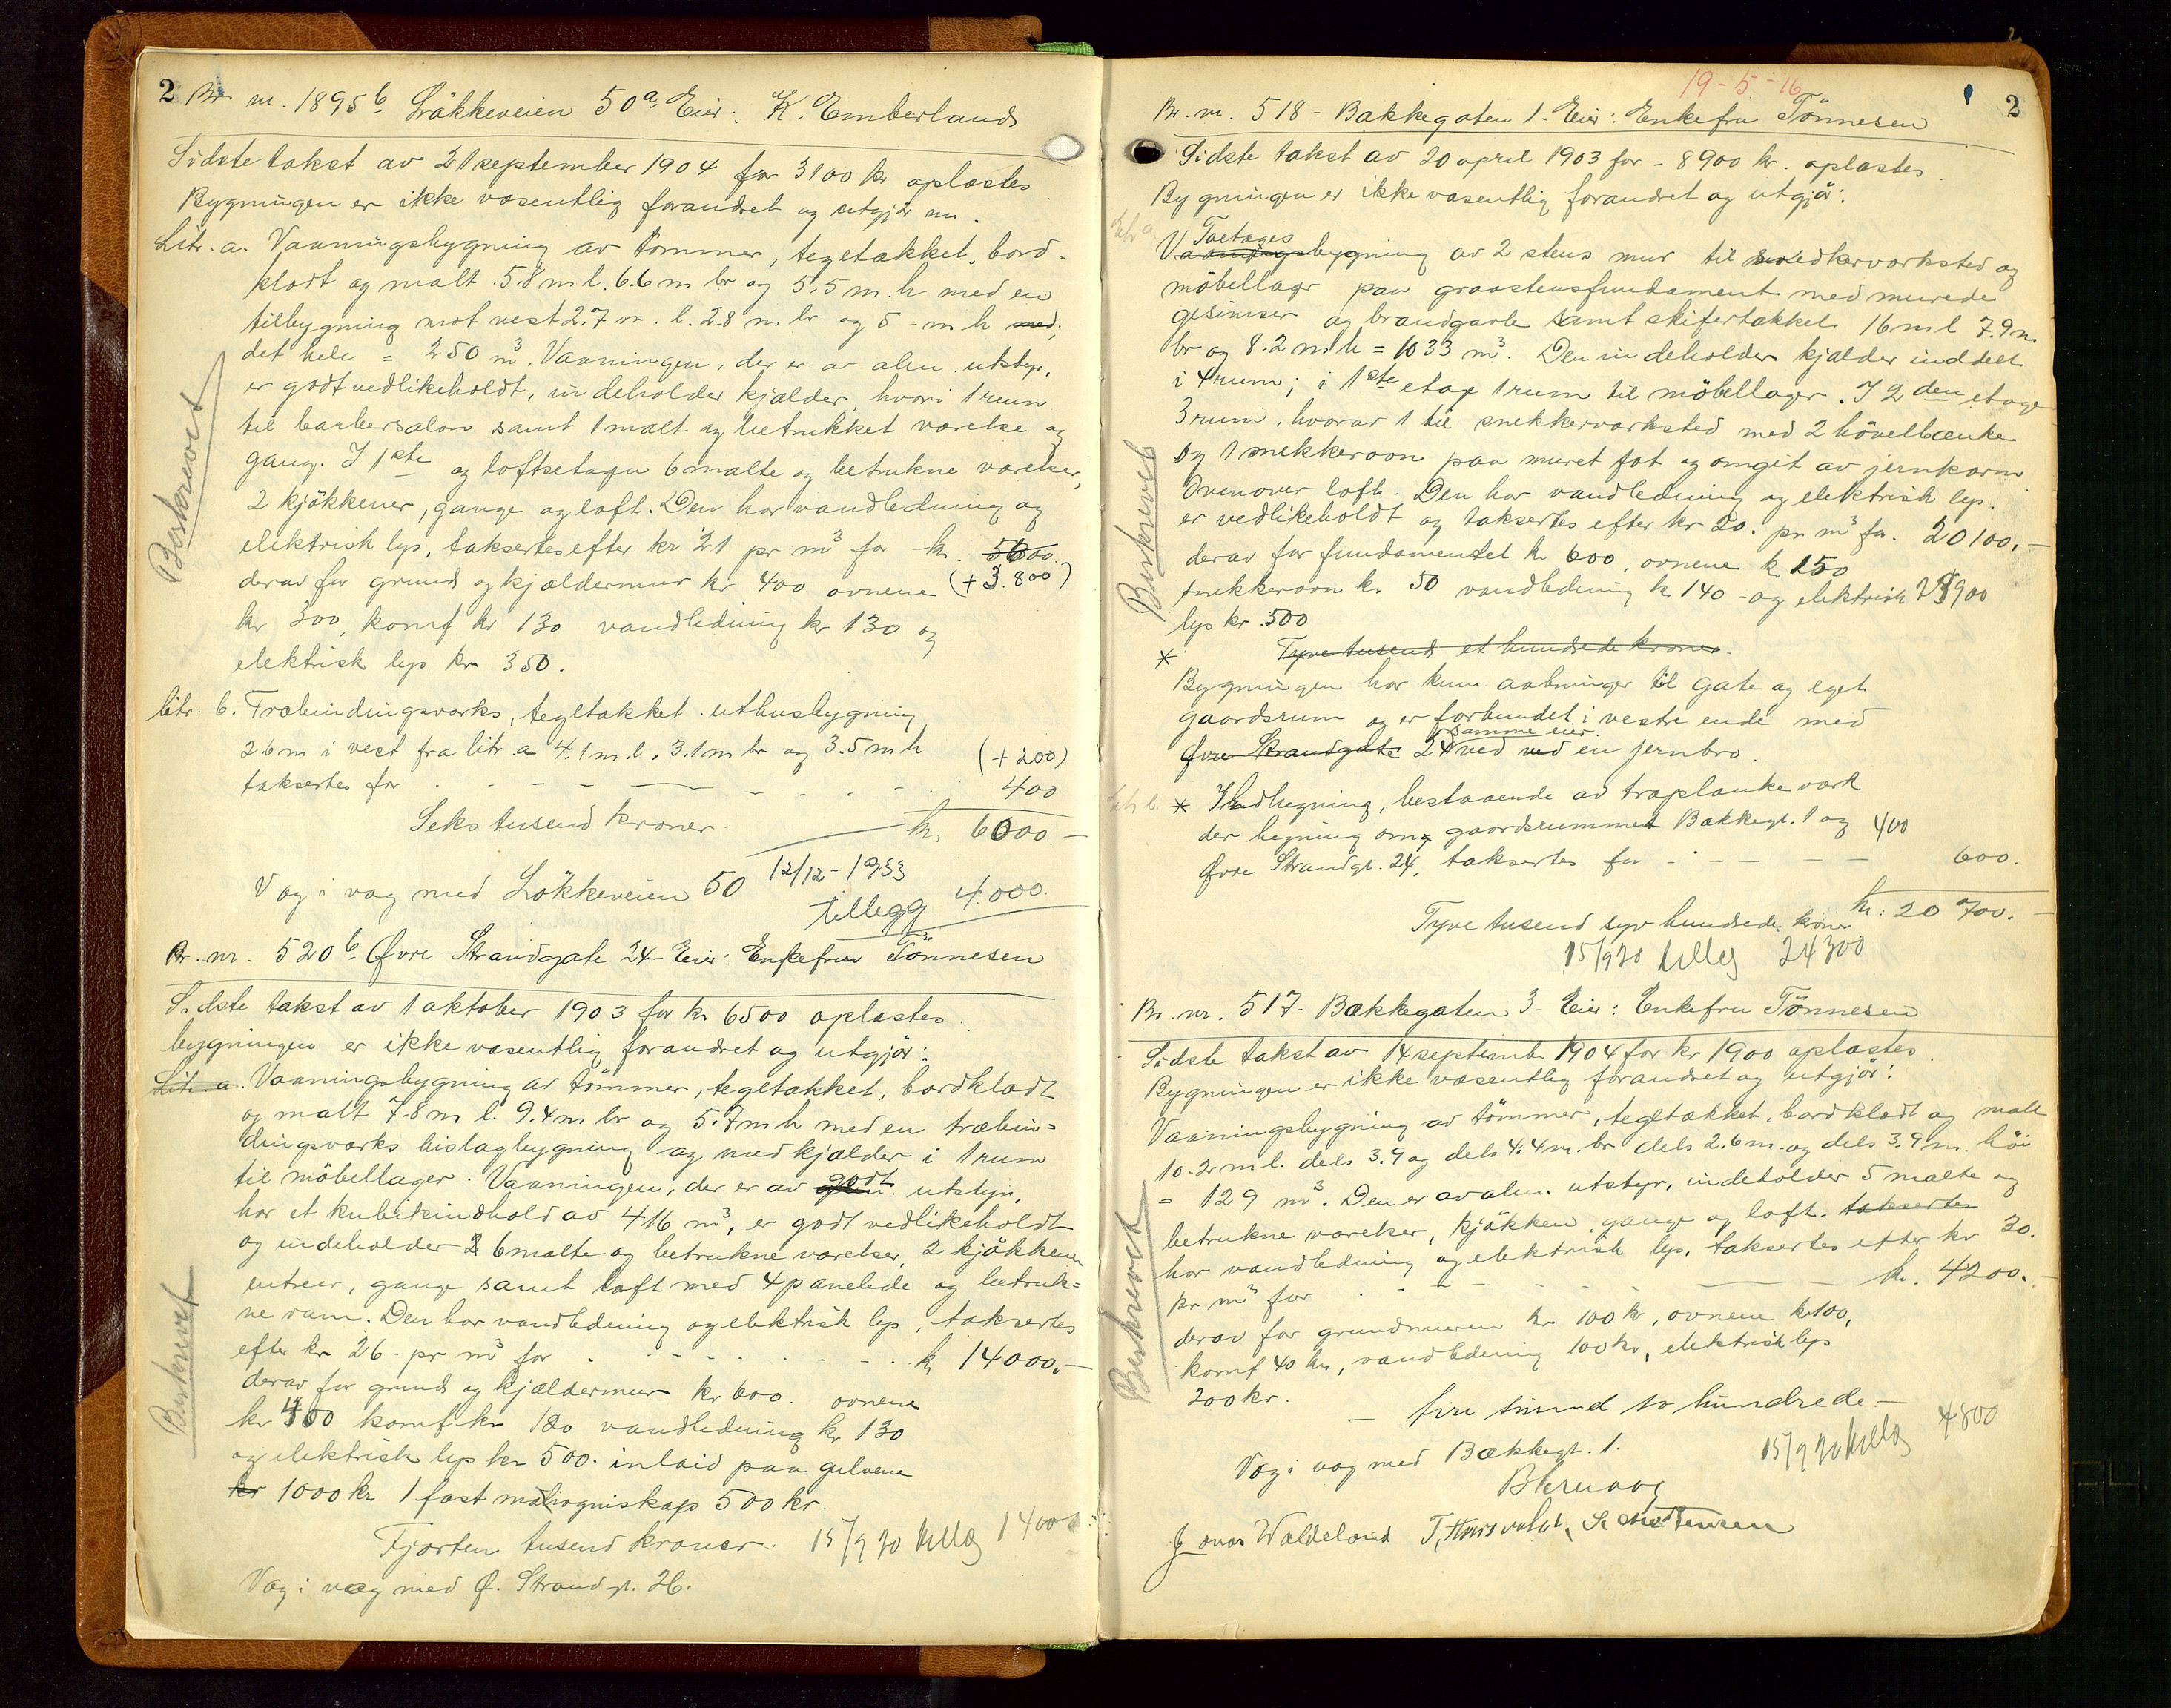 2 Br. nr. 1895b Løkkeveien 50a Eier: K. Emberland
Sidste takst av 21 september 1904 for 3100 kr oplæstes
Bygningen er ikke væsentlig forandret og utgjör nu.
Litr. a. Vaaningsbygning av tömmer, tegltækket, bord-
klædt og malt 5.8 m l. 6.6 m br og 5.5 m. h med en
tilbygning mot vest 2.7 m. l. 2.8 m br og 5 - m h med;
det hele = 250 m³. Vaaningen, der er av alm. utstyr,
er godt vedlikeholdt, indeholder kjælder, hvori 1 rum
til barbersalon samt 1 malt og betrukket værelse og
gang. I 1ste og loftsetagen 6 malte og betrukne værelser,
2 kjökkener, gange og loft. Den har vandledning og
elektrisk lys, taksertes efter kr 21 pr m³ for kr. 5600.
derav for grund og kjældermur kr 400 ovnene (+3.800)
kr 300, komf kr 130 vandledning kr 130 og
elektrisk lys kr 350.
litr. b. Træbindingsværks, tegltækket uthusbygning
2.6 m i vest fra litr. a 4.1 m. l. 3.1 m br og 3.5 m h (+200)
taksertes for 400
Seks tusend kroner. kr 6000.-
Væg i væg med Lökkeveien 50 12/12-1933
tillegg 4.000.
Br. nr. 520b Øvre Strandgate 24 - Eier: Enkefru Tönnesen
Sidste takst av 1 oktober 1903 for kr 6500 oplæstes.
bygningen er ikke væsentlig forandret og utgjör:
Litr. a. Vaaningsbygning av tömmer, tegltækket, bordklædt
og malt 7.8 m l. 9.4 m br og 5.7 m h med en træbin=
dingsværks bislagbygning og med kjælder i 1 rum
til möbellager. Vaaningen, der er av alm. godt utstyr,
har et kubikindhold av 416 m³, er godt vedlikeholdt
og indeholder 6 malte og betrukne værelser, 2 kjökkener
entreer, gange samt loft med 4 panelede og betruk=
ne rum. Den har vandledning og elektrisk lys, taksertes
efter kr 26 - pr m³ for kr 14000.-
derav for grund og kjældermur kr 600. ovnene
kr 400 komf. kr 120 vandledning kr 130
og elektrisk lys kr 500. inlaid paa gulvene
kr 1000 kr 1 fast mahogniskap 500 kr.
Fjorten tusend kroner. 15/9 20 tillæg 14000
Væg i væg med Ø. Strandgt. 26.
Beskrevet
Beskrevet
19-5-16
2
Br. nr. 518 - Bakkegaten 1. Eier: Enkefru Tönnesen
Sidste takst av 20 april 1903 for - 8900 kr. oplæstes.
Bygningen er ikke væsentlig forandret og utgjör:
Litr a.
Toetages
Vaaningsbygning av 2 stens mur til snedkerværksted og
möbellager paa graastensfundament med murede
gesimser og brandgavle samt skifertækket 16 m l 7.9 m
br og 8.2 m h = 1033 m³. Den indeholder kjælder inddelt
i 4 rum; i 1ste etage 1 rum til möbellager. I 2den etage
3 rum, hvorav 1 til snekkerværksted med 2 hövelbænke
og 1 snekkerovn paa muret fot og omgit av jernkarm
Ovenover loft. Den har vandledning og elektrisk lys.
er vedlikeholdt og taksertes efter kr 20. pr m³ for 20100.-
derav for fundamentet kr 600, ovnene kr 150
snekkerovn kr 50 vandledning kr 140 - og elektrisk 23900
lys kr. 500
* Tyve tusend et hundrede kroner.
Bygningen har kun aabninger til gate og eget
gaardsrum og er forbundet i vestre ende med
samme eier.
Øvre Strandgate 24 ved ved en jernbro.
Litr b. * Indhegning, bestaaende av træplankeværk
der hegning om gaardsrummet Bakkegt. 1 og 400
Øvre Strandgt. 24, taksertes for 600.
kr. 20700.-
Tyve tusend syv hundrede kroner
15/9 20 tillæg 24300
Br. nr. 517. Bakkegaten 3 - Eier: Enkefru Tönnesen
Sidste takst av 14 septembr 1904 for kr 1900 oplæstes.
Bygningen er ikke væsentlig forandret og utgjör:
Vaaningsbygning av tömmer, tegltækket, bordklædt og malt
10.2 m l. dels 3.9 og dels 4.4 m. br dels 2.6 m. og dels 3.9 m. höi
= 129 m³. Den er av alm. utstyr, indeholder 5 malte og
betrukne værelser, kjökken, gange og loft. taksertes
har vandledning og elektrisk lys, taksertes efter kr 30.
pr m³ for kr. 4200.-
derav for grundmuren kr 100 kr, ovnene kr 100,
komf 40 kr, vandledning 100 kr, elektrisk lys
200 kr.
- fire tusend to hundrede -
15/9 20 tillæg 4800
Væg i væg med Bakkegt. 1.
Jonas Waldeland
Beskrevet
Beskrevet